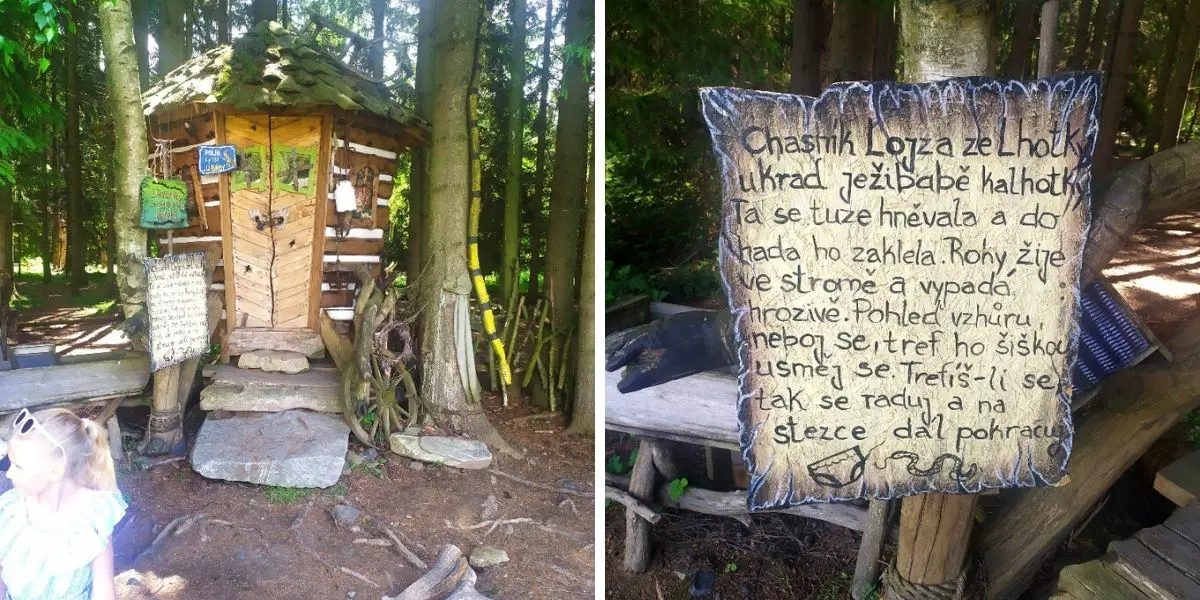 POLNÍ
Chasník Lojza ze Lhotky
ukrad ježibabě kalhotky
Ta se tuze hněvala a do
hada ho zaklela. Rohy žije
ve stromě a vypadá
hrozivě. Pohled vzhůru,
neboj se, tref ho šiškou
usměj se. Trefíš-li se,
tak se raduj a na
stezce dál pokračuj